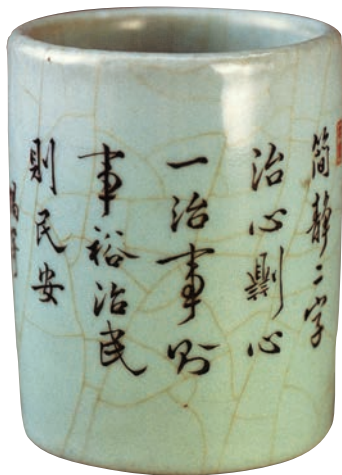 简静二字
治心則心
一治事則
事裕治民
則民安